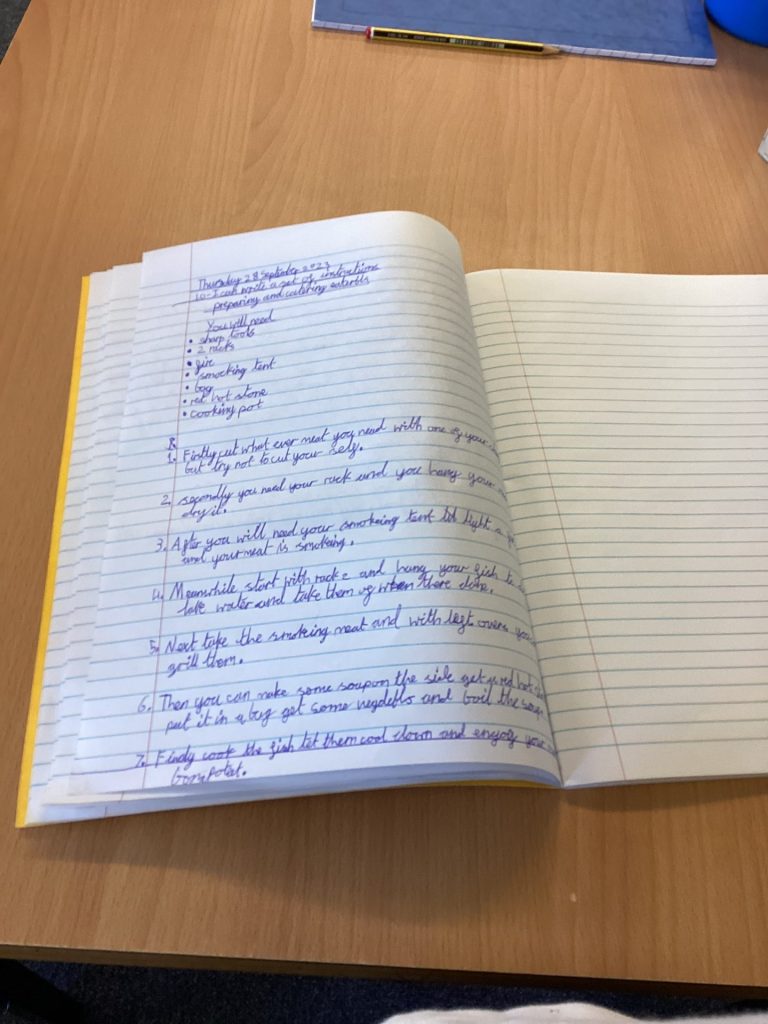 Thursday 28 September 2023
LO - I can write a set of instructions
preparing and catering
You will need
• sharp tools
• 2 racks
• fire
• smocking tent
• bag
• red hot stone
• cooking pot
1. Firstly cut what ever meat you need with one of your
but try not to cut your self.
2. secondly you need your rack and you hang your
dry it.
3. After you will need your smokeing tent light a
and your meat is smoking.
4. Meanwhile start with rack 2 and hang your fish to
take water and take them of when there done.
5. Next take the smoking meat and with left overs
grill them.
6. Then you can make some soup on the side get a red hot
put it in a bag get some and boil the soup
7. cook the fish let them cool down and